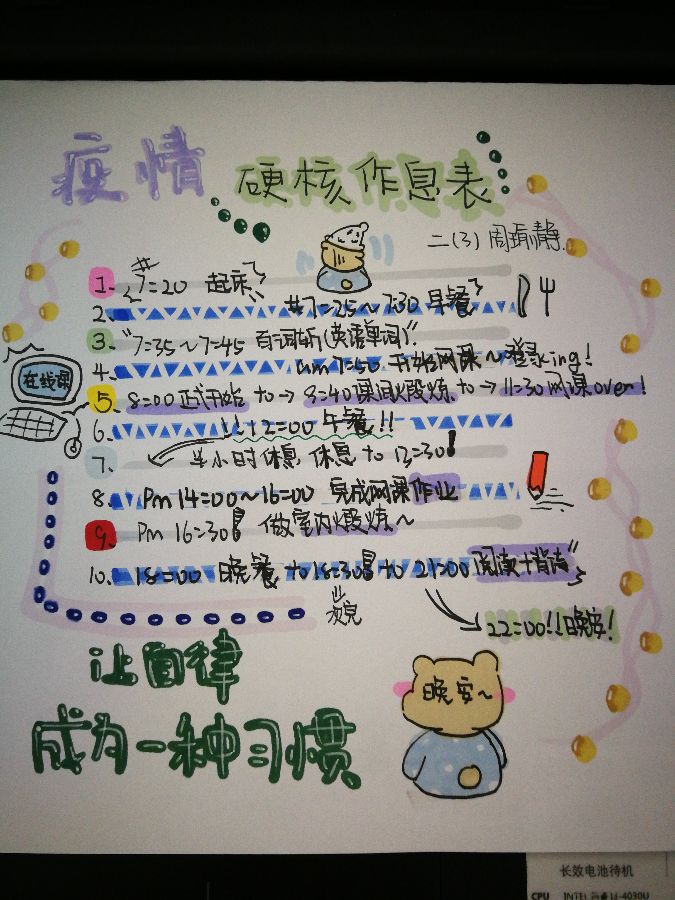 疫情 硬核作息表
二(3) 周瑜静
1. 7:20 起床
2. 7:25~7:30 早餐
3. "7:35~7:45 百词斩(英语单词)"
4. am 7:50 开始网课~登录ing!
在线课
5. 8:00正式开始 to→ 9:40课间煅炼 to→ 11:30网课over!
6. !!12:00 午餐!!
7. 半小时休息 休息 to 13:30!
8. Pm 14:00~16:00 完成网课作业
9. Pm 16:30! 做室内煅炼~
10. 18:00 晚餐 to 18:30! to 21:00 阅读+背诵"
22:00!!晚安!
让自律
成为一种习惯
晚安~
长效电池待机
CPU INTEL i4-4030U